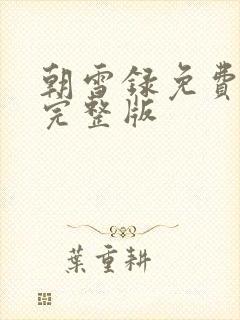 朝雪録免費
完整版
葉重耕